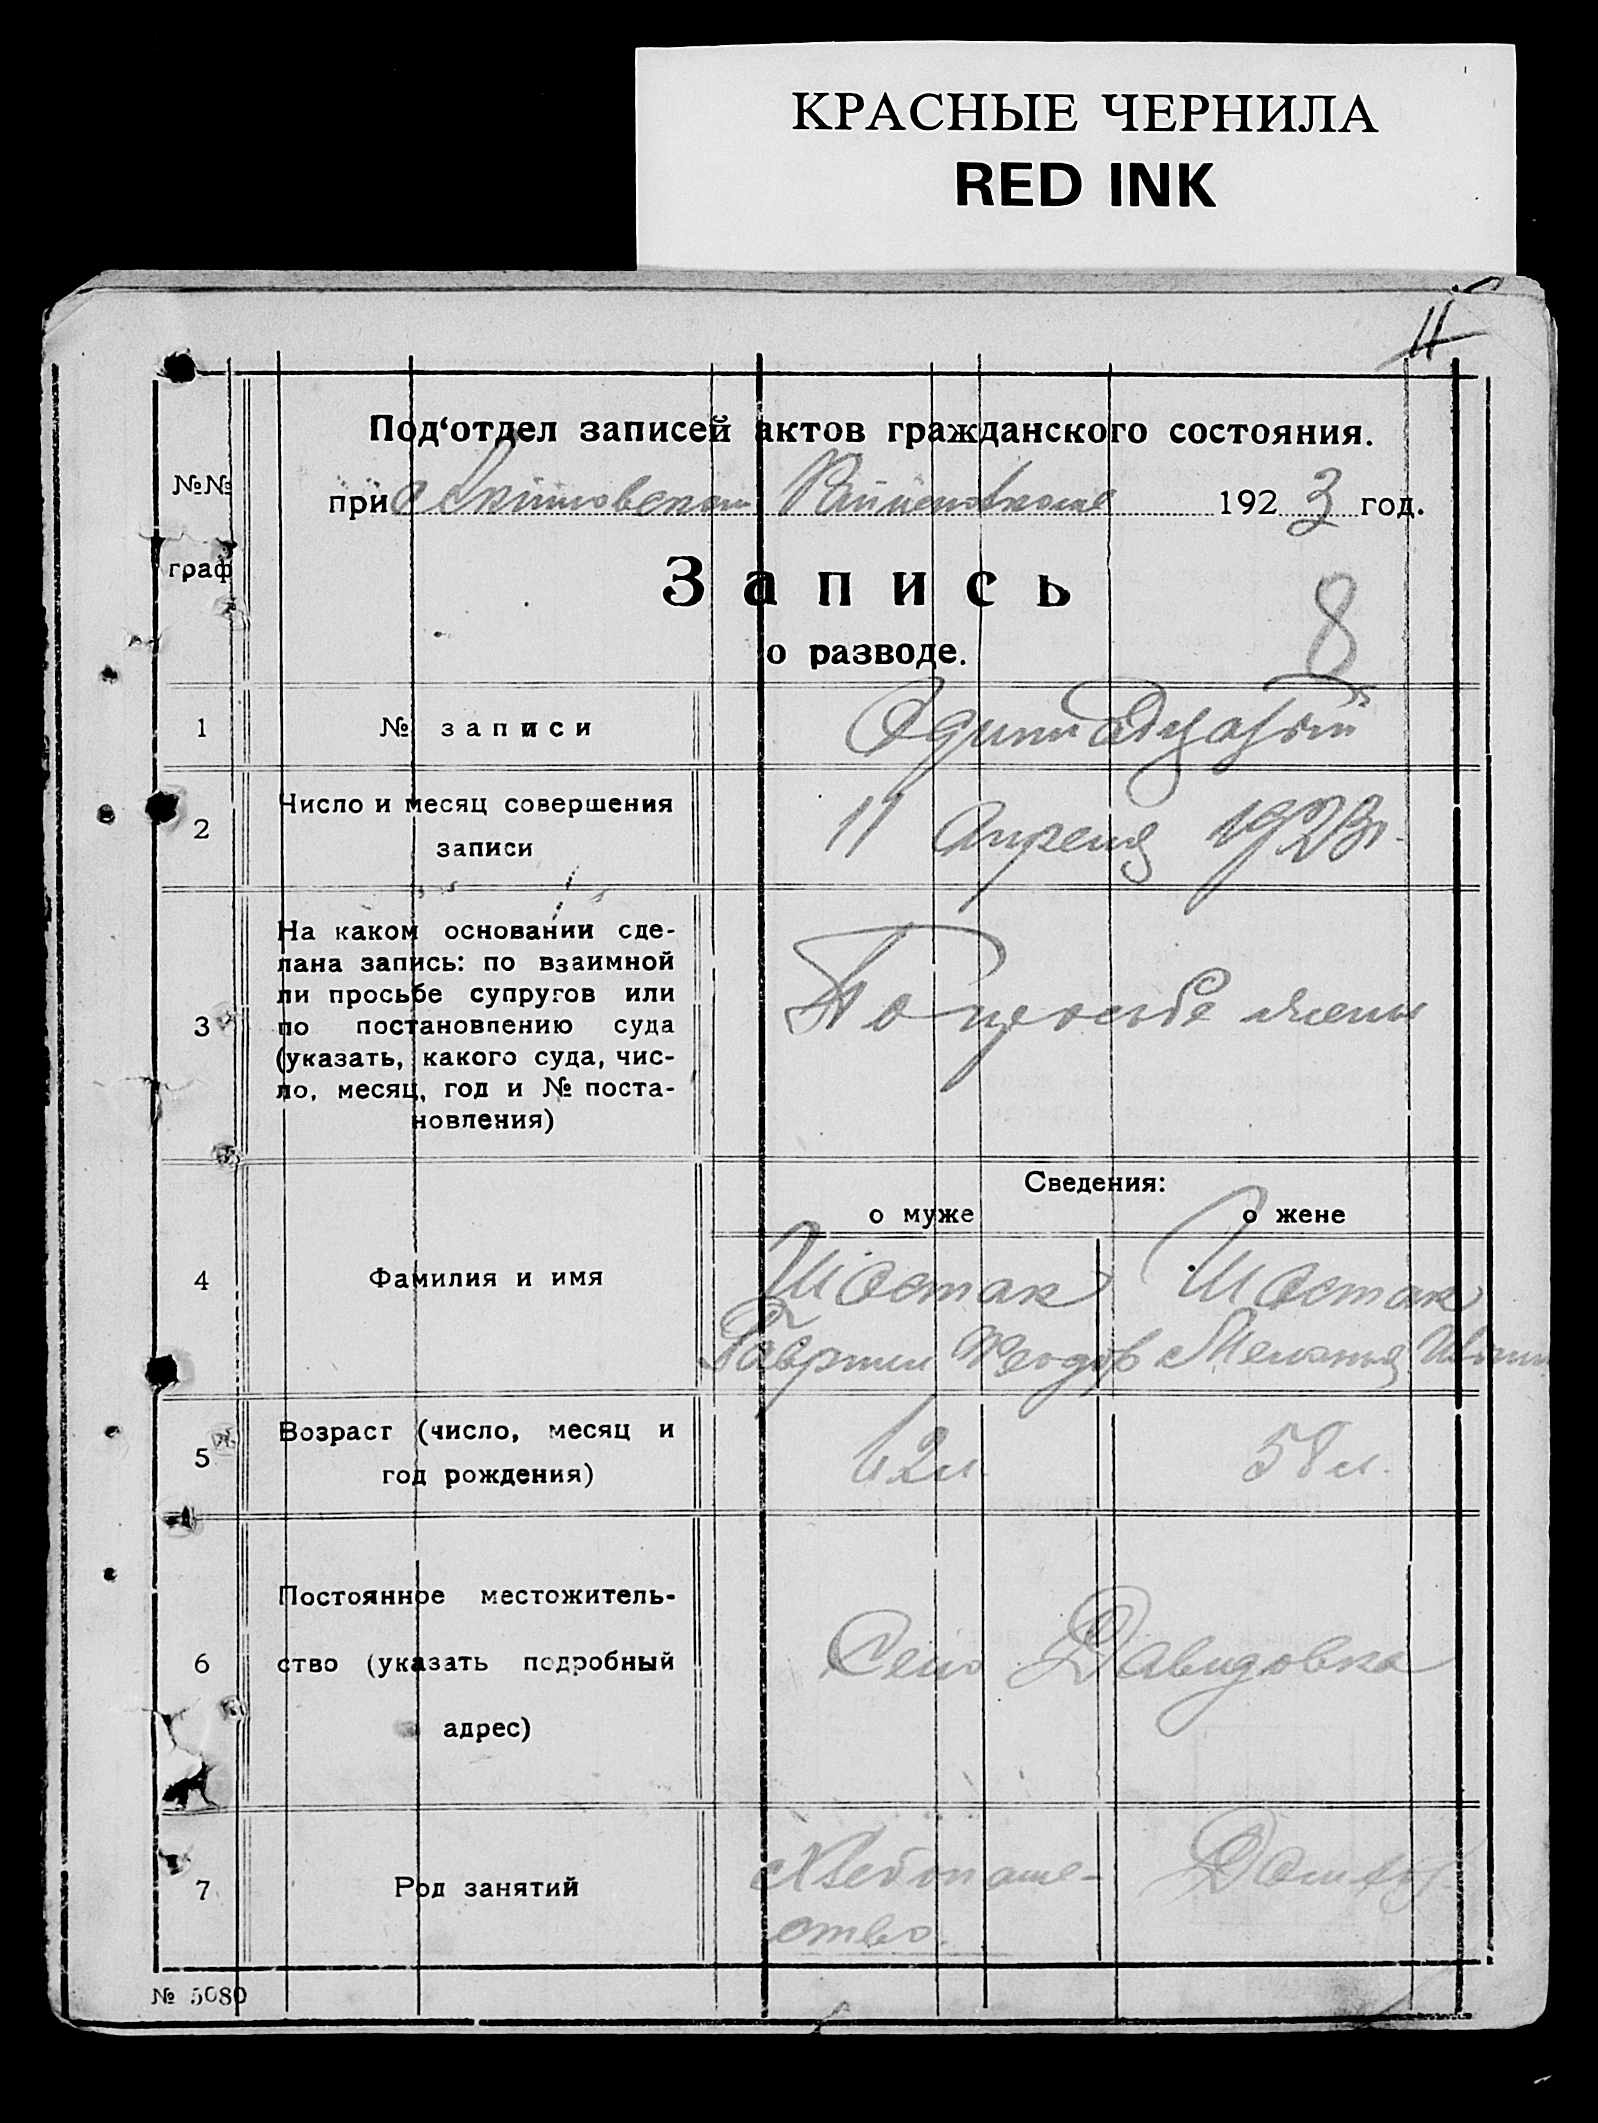 КРАСНЫЕ ЧЕРНИЛА
RED INK
11
Под‘отдел записей актов гражданского состояния.
№№
граф
при Акимовском Райисполкоме 1923 год.
Запись
8
о разводе.
1 № записи Одиннадцатый
2 Число и месяц совершения
записи
11 Апреля 1923 г.
3 На каком основании сде-
лана запись: по взаимной
ли просьбе супругов или
по постановлению суда
(указать, какого суда, чис-
ло, месяц, год и № поста-
новления)
По просьбе жены
Сведения:
о муже о жене
4 Фамилия и имя
Шостак Шостак
Гавриил Феодор Мелания
5 Возраст (число, месяц и
год рождения)
62 л. 58 л.
6 Постоянное местожитель-
ство (указать подробный
адрес)
Село Давидовка
7 Род занятий
Хлебопаше-
ство.
№ 5080